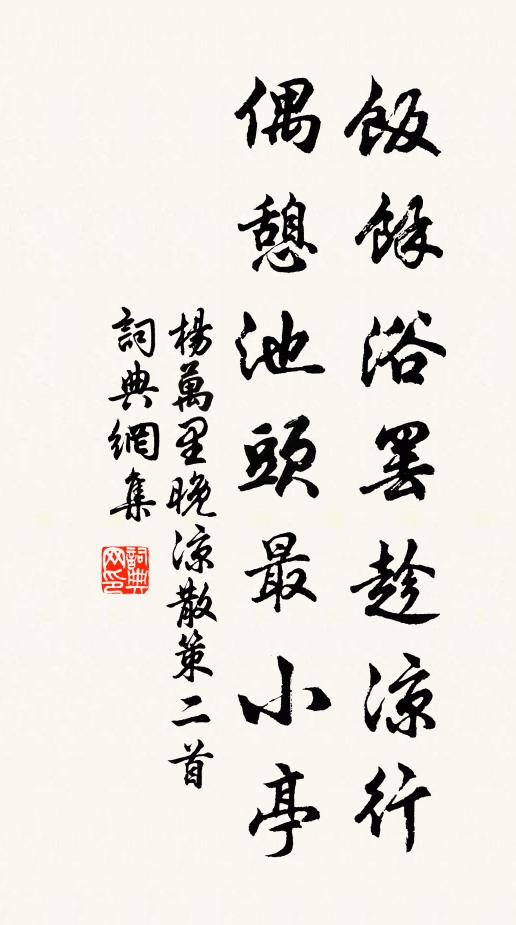 飯餘浴罷趁涼行
偶憩池頭最小亭
楊萬里晚涼散策二首
詞典網集
詞典网印